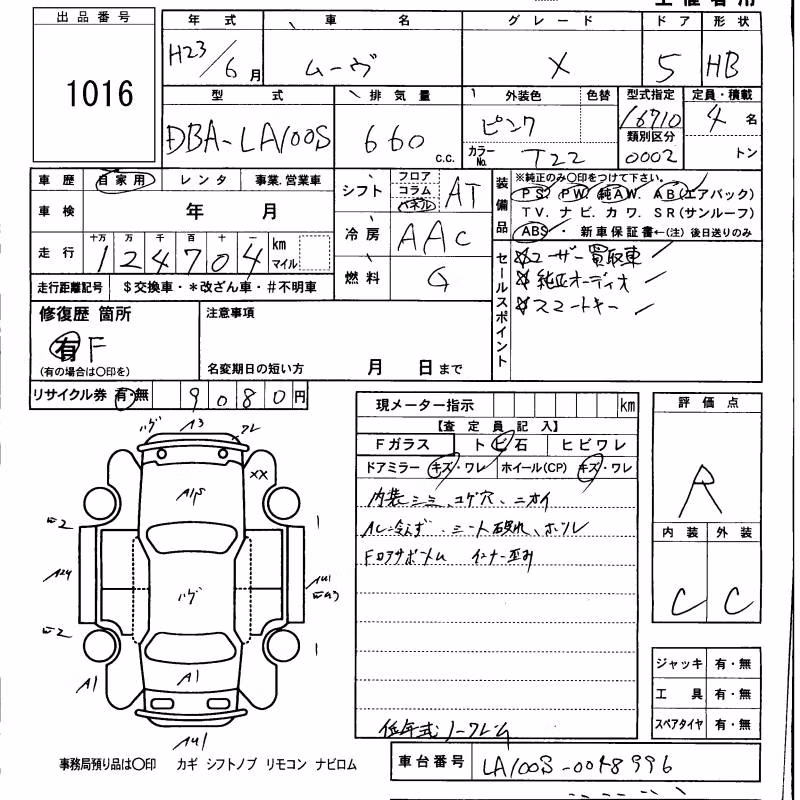 出品番号
1016
年式 車名 グレード ドア 形状
H23/6月 ムーヴ X 5 HB
型式 排気量 外装色 色替 型式指定 定員・積載
DBA-LA100S 660 c.c. ピンク 16710 4名
カラーNo. T22 類別区分 0002 トン
車歴 自家用 レンタ 事業.営業車
車検 年 月
走行 十万 万 千 百 十 一 km マイル
124704
走行距離記号 $交換車・*改ざん車・#不明車
シフト フロア コラム パネル AT
冷房 AAC
燃料 G
装備品 ※純正のみ○印をつけて下さい。
PS. PW. 純AW. AB(エアバック)
TV. ナビ. カワ. SR(サンルーフ)
ABS・新車保証書←(注)後日送りのみ
セールスポイント
ユーザー買取車
純正オーディオ
スマートキー
修復歴 箇所
有 F
(有の場合は○印を)
注意事項
名変期日の短い方 月 日まで
リサイクル券 有・無 9080円
現メーター指示 km
【査定員記入】
Fガラス トビ石 ヒビワレ
ドアミラー キズ・ワレ ホイール(CP) キズ・ワレ
内装シミ、コゲ穴、ニオイ
AC冷えず、シート破れ、
Fロアサポートム インナー歪み
評価点
R
内装 外装
C C
ハゲ A3 ワレ
XX
ハゲ
A1
A1
ジャッキ 有・無
工具 有・無
スペアタイヤ 有・無
事務局預り品は○印 カギ シフトノブ リモコン ナビロム
車台番号 LA100S-0048996